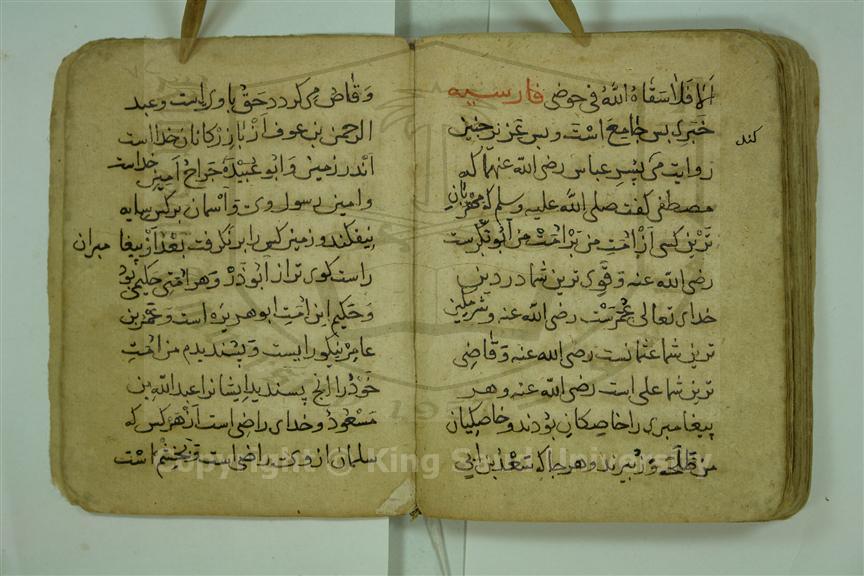 الا فلا سقاه الله فی حوضی فارسیه
خبری بس جامع است و بس عزیز چنین
کند
روایت می پسر عباس رضی الله عنهما که
مصطفی کفت صلی الله علیه وسلم که مهربان
ترین کسی از امت من بر امت من ابو بکرست
رضی الله عنه و قوی ترین شما در دین
خدای تعالی عمرست رضی الله عنه و شرمکین
ترین شما عثمانست رضی الله عنه و قاضی
ترین شما علی است رضی الله عنه و هر
پیغامبری را خاصکان بودند و خاصکیان
من طلحه و زبیرند و هرجا که سعد بن ابی
وقاص می کردد حق باوی است و عبد
الرحمن بن عوف از بازرکانان خدا است
اندر زمین و ابو عبیده جراح امین خداست
و امین رسول وی و آسمان بر کس سایه
نیفکند و زمین کس را برنکرفت بعد از پیغامبران
راست کوی تر از ابو ذر و هر امتی حکیمی بود
و حکیم این امت ابو هریره است و عمر بن
عامر نیکو رایست و پسندیدم من امت
خود را انچ پسندید ایشانرا عبدالله بن
مسعود و خدای راضی است از هر کس که
سلمان از وی راضی است و بخشم است
Copyright © King Saud University